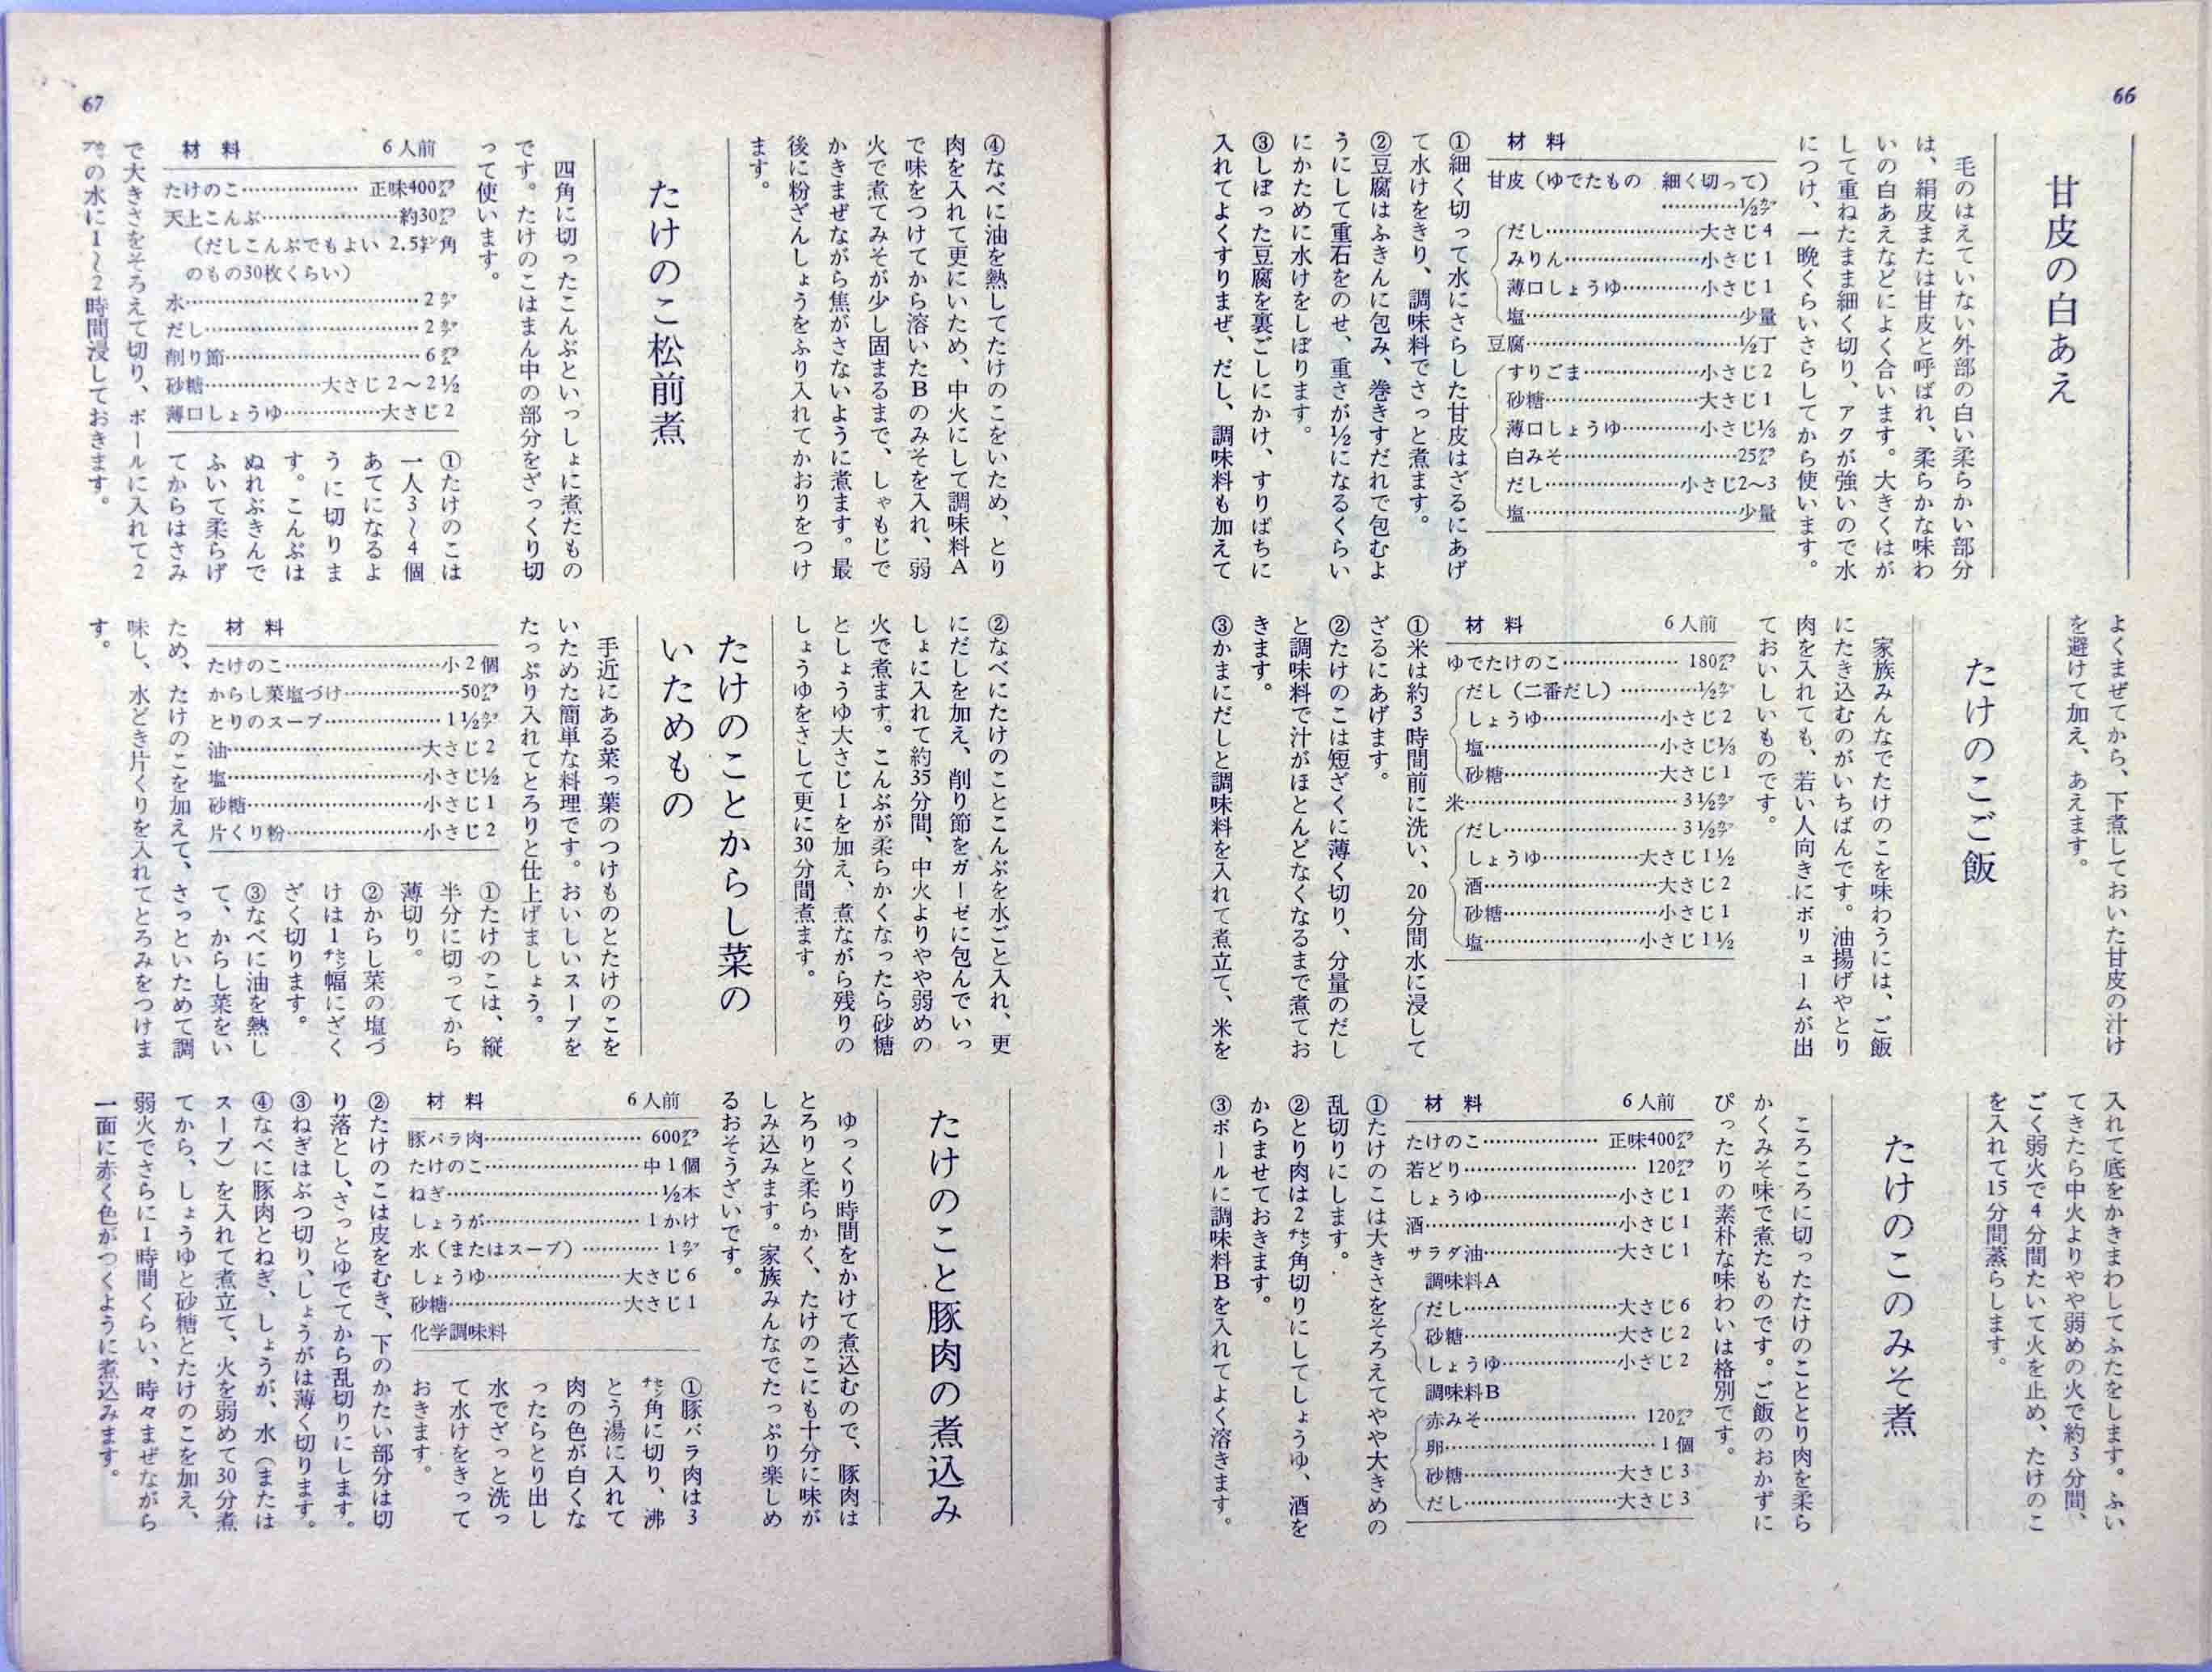 66
甘皮の白あえ
毛のはえていない外部の白い柔らかい部分
は、絹皮または甘皮と呼ばれ、柔らかな味わ
いの白あえなどによく合います。大きくはが
して重ねたまま細く切り、アクが強いので水
につけ、一晩くらいさらしてから使います。
材料
甘皮（ゆでたもの　細く切って）
…………½カップ
だし……………………大さじ4
みりん…………………小さじ1
薄口しょうゆ…………小さじ1
塩……………………………少量
豆腐…………………………½丁
すりごま………………小さじ2
砂糖……………………大さじ1
薄口しょうゆ…………小さじ⅓
白みそ………………………25グラム
だし…………………小さじ2〜3
塩……………………………少量
①細く切って水にさらした甘皮はざるにあげ
て水けをきり、調味料でさっと煮ます。
②豆腐はふきんに包み、巻きすだれで包むよ
うにして重石をのせ、重さが½になるくらい
にかために水けをしぼります。
③しぼった豆腐を裏ごしにかけ、すりばちに
入れてよくすりまぜ、だし、調味料も加えて
よくまぜてから、下煮しておいた甘皮の汁け
を避けて加え、あえます。
たけのこご飯
家族みんなでたけのこを味わうには、ご飯
にたき込むのがいちばんです。油揚げやとり
肉を入れても、若い人向きにボリュームが出
ておいしいものです。
材料　6人前
ゆでたけのこ………………180グラム
だし（二番だし）…………½カップ
しょうゆ………………小さじ2
塩………………………小さじ⅓
砂糖……………………大さじ1
米……………………………3½カップ
だし…………………………3½カップ
しょうゆ……………大さじ1½
酒………………………大さじ2
砂糖……………………小さじ1
塩……………………小さじ1½
①米は約3時間前に洗い、20分間水に浸して
ざるにあげます。
②たけのこは短ざくに薄く切り、分量のだし
と調味料で汁がほとんどなくなるまで煮てお
きます。
③かまにだしと調味料を入れて煮立て、米を
入れて底をかきまわしてふたをします。ふい
てきたら中火よりやや弱めの火で約3分間、
ごく弱火で4分間たいて火を止め、たけのこ
を入れて15分間蒸らします。
たけのこのみそ煮
ころころに切ったたけのこととり肉を柔ら
かくみそ味で煮たものです。ご飯のおかずに
ぴったりの素朴な味わいは格別です。
材料　6人前
たけのこ………………正味400グラム
若どり………………………120グラム
しょうゆ………………小さじ1
酒………………………小さじ1
サラダ油………………大さじ1
調味料A
だし……………………大さじ6
砂糖……………………大さじ2
しょうゆ………………小さじ2
調味料B
赤みそ………………………120グラム
卵……………………………1個
砂糖……………………大さじ3
だし……………………大さじ3
①たけのこは大きさをそろえてやや大きめの
乱切りにします。
②とり肉は2センチ角切りにしてしょうゆ、酒を
からませておきます。
③ボールに調味料Bを入れてよく溶きます。
67
④なべに油を熱してたけのこをいため、とり
肉を入れて更にいため、中火にして調味料A
で味をつけてから溶いたBのみそを入れ、弱
火で煮てみそが少し固まるまで、しゃもじで
かきまぜながら焦がさないように煮ます。最
後に粉ざんしょうをふり入れてかおりをつけ
ます。
たけのこ松前煮
四角に切ったこんぶといっしょに煮たもの
です。たけのこはまん中の部分をざっくり切
って使います。
材料　6人前
たけのこ………………正味400グラム
天上こんぶ…………………約30グラム
（だしこんぶでもよい　2.5センチ角
のもの30枚くらい）
水……………………………2カップ
だし…………………………2カップ
削り節………………………6グラム
砂糖………………大さじ2〜2½
薄口しょうゆ…………大さじ2
①たけのこは
一人3〜4個
あてになるよ
うに切りま
す。こんぶは
ぬれぶきんで
ふいて柔らげ
てからはさみ
で大きさをそろえて切り、ボールに入れて2
カップの水に1〜2時間浸しておきます。
②なべにたけのことこんぶを水ごと入れ、更
にだしを加え、削り節をガーゼに包んでいっ
しょに入れて約35分間、中火よりやや弱めの
火で煮ます。こんぶが柔らかくなったら砂糖
としょうゆ大さじ1を加え、煮ながら残りの
しょうゆをさして更に30分間煮ます。
たけのことからし菜の
いためもの
手近にある菜っ葉のつけものとたけのこを
いためた簡単な料理です。おいしいスープを
たっぷり入れてとろりと仕上げましょう。
材料
たけのこ……………………小2個
からし菜塩づけ………………50グラム
とりのスープ………………1½カップ
油………………………大さじ2
塩………………………小さじ½
砂糖……………………小さじ1
片くり粉………………小さじ2
①たけのこは、縦
半分に切ってから
薄切り。
②からし菜の塩づ
けは1センチ幅にざく
ざく切ります。
③なべに油を熱し
て、からし菜をい
ため、たけのこを加えて、さっといためて調
味し、水どき片くりを入れてとろみをつけま
す。
たけのこと豚肉の煮込み
ゆっくり時間をかけて煮込むので、豚肉は
とろりと柔らかく、たけのこにも十分に味が
しみ込みます。家族みんなでたっぷり楽しめ
るおそうざいです。
材料　6人前
豚バラ肉……………………600グラム
たけのこ……………………中1個
ねぎ…………………………½本
しょうが……………………1かけ
水（またはスープ）…………1カップ
しょうゆ………………大さじ6
砂糖……………………大さじ1
化学調味料
①豚バラ肉は3
センチ角に切り、沸
とう湯に入れて
肉の色が白くな
ったらとり出し
水でざっと洗っ
て水けをきって
おきます。
②たけのこは皮をむき、下のかたい部分は切
り落とし、さっとゆでてから乱切りにします。
③ねぎはぶつ切り、しょうがは薄く切ります。
④なべに豚肉とねぎ、しょうが、水（または
スープ）を入れて煮立て、火を弱めて30分煮
てから、しょうゆと砂糖とたけのこを加え、
弱火でさらに1時間くらい、時々まぜながら
一面に赤く色がつくように煮込みます。